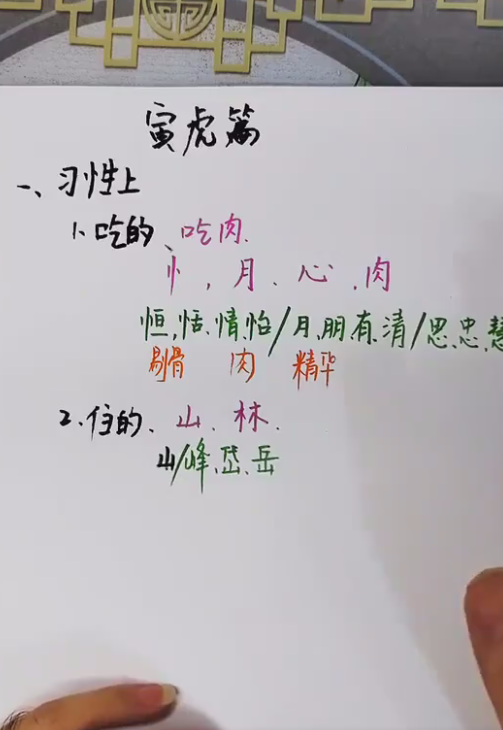 寅虎篇
一、习性上
1、吃的、吃肉.
忄,月、心、肉
恒,恬、情,怡/月、朋、有、清/思、忠、慧
剔骨 肉 精华
2、住的、山、林.
山/峰、岱、岳